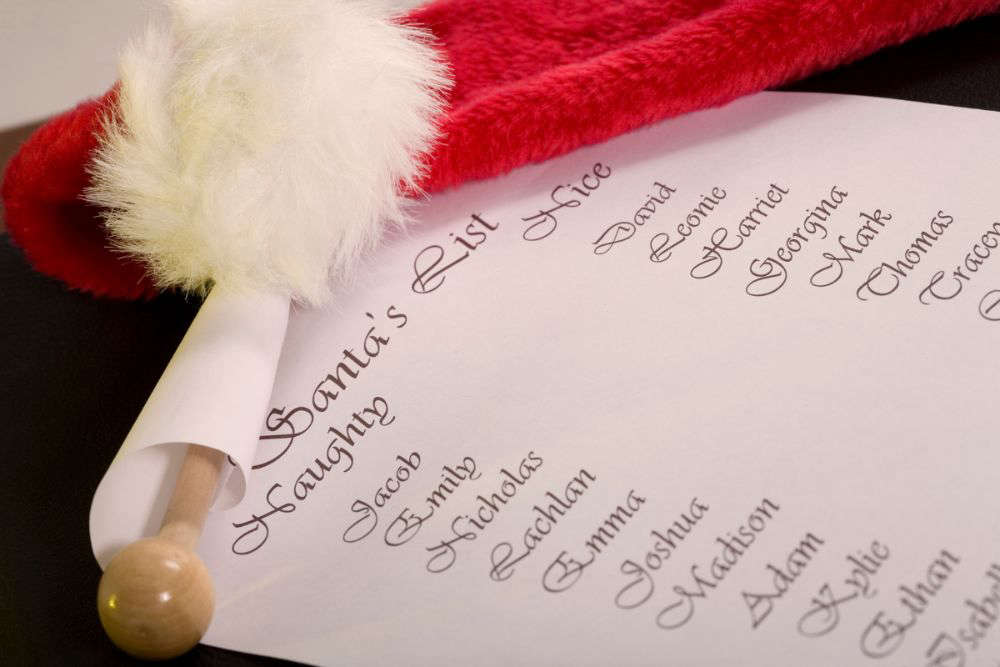 Santa's List
Naughty
Jacob
Emily
Nicholas
Lachlan
Emma
Joshua
Madison
Adam
Kylie
Ethan
Isabell
Nice
David
Leonie
Harriet
Georgina
Mark
Thomas
Tracey